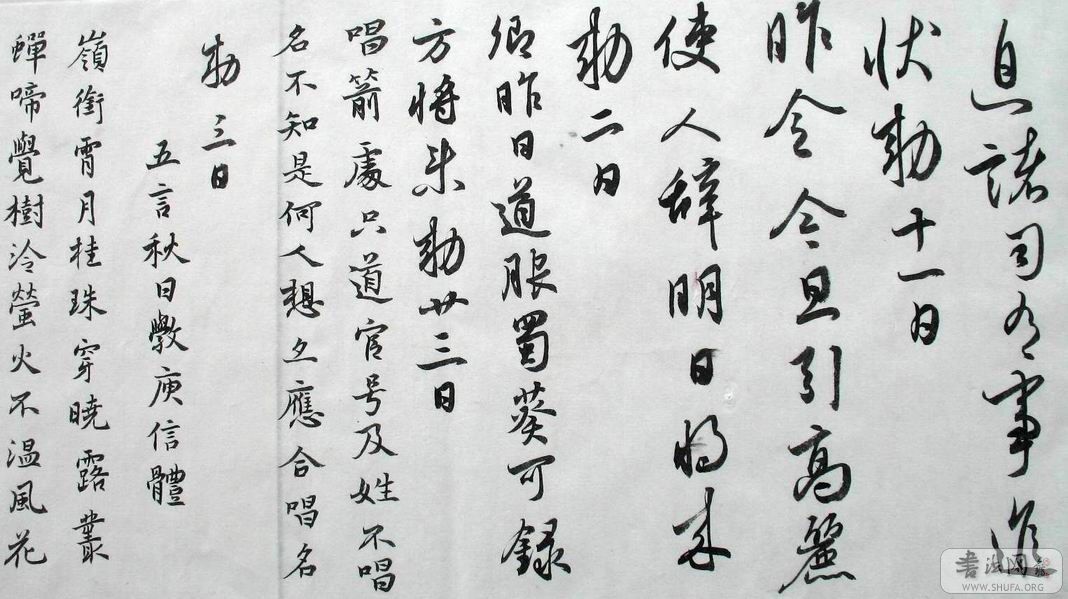 諸司有事進
狀勅十一日
昨令今旦引高麗
使人辭明日將来
勅二日
卿昨日道服蜀葵可録
方將来勅廿三日
唱箭處只道官号及姓不唱
名不知是何人想亦應合唱名
勅三日
五言秋日斆庾信體
嶺銜霄月桂珠穿曉露叢
蟬啼覺樹冷螢火不温風花
書法网
WWW.SHUFA.ORG